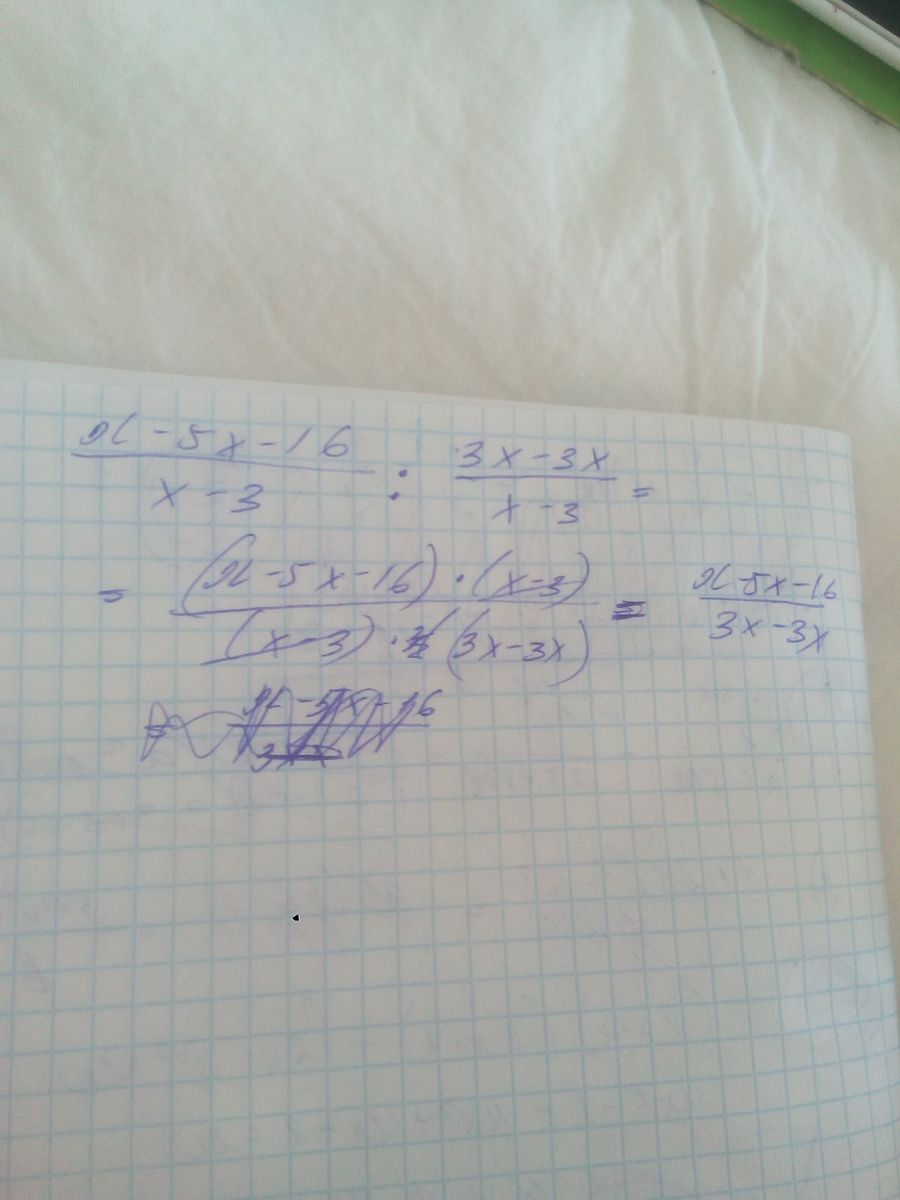 (x - 5x - 16)/(x - 3) : (3x - 3x)/(x - 3) =
= ((x - 5x - 16) · (x - 3))/((x - 3) · (3x - 3x)) = (x - 5x - 16)/(3x - 3x)